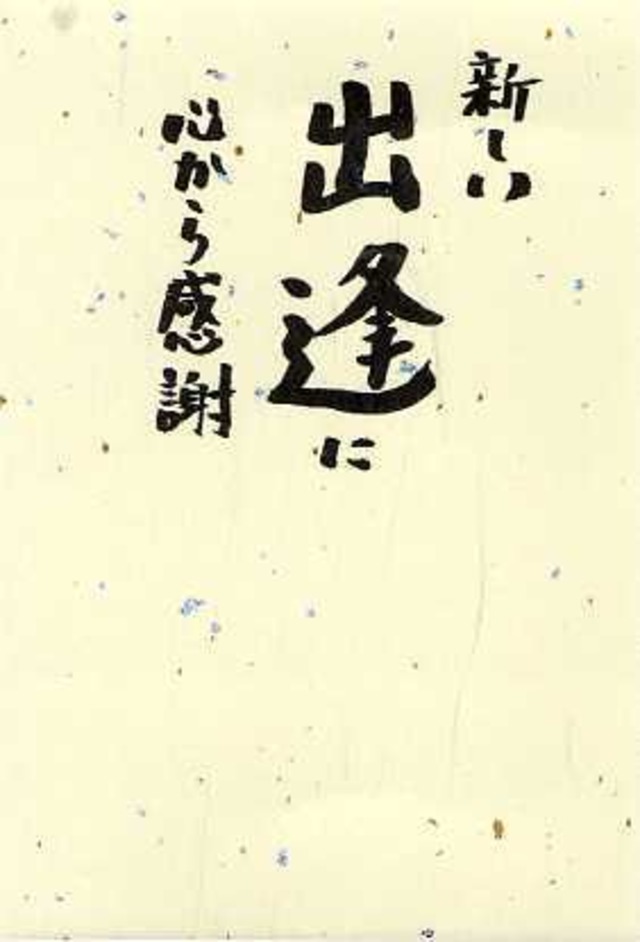 新しい
出逢に
心から感謝